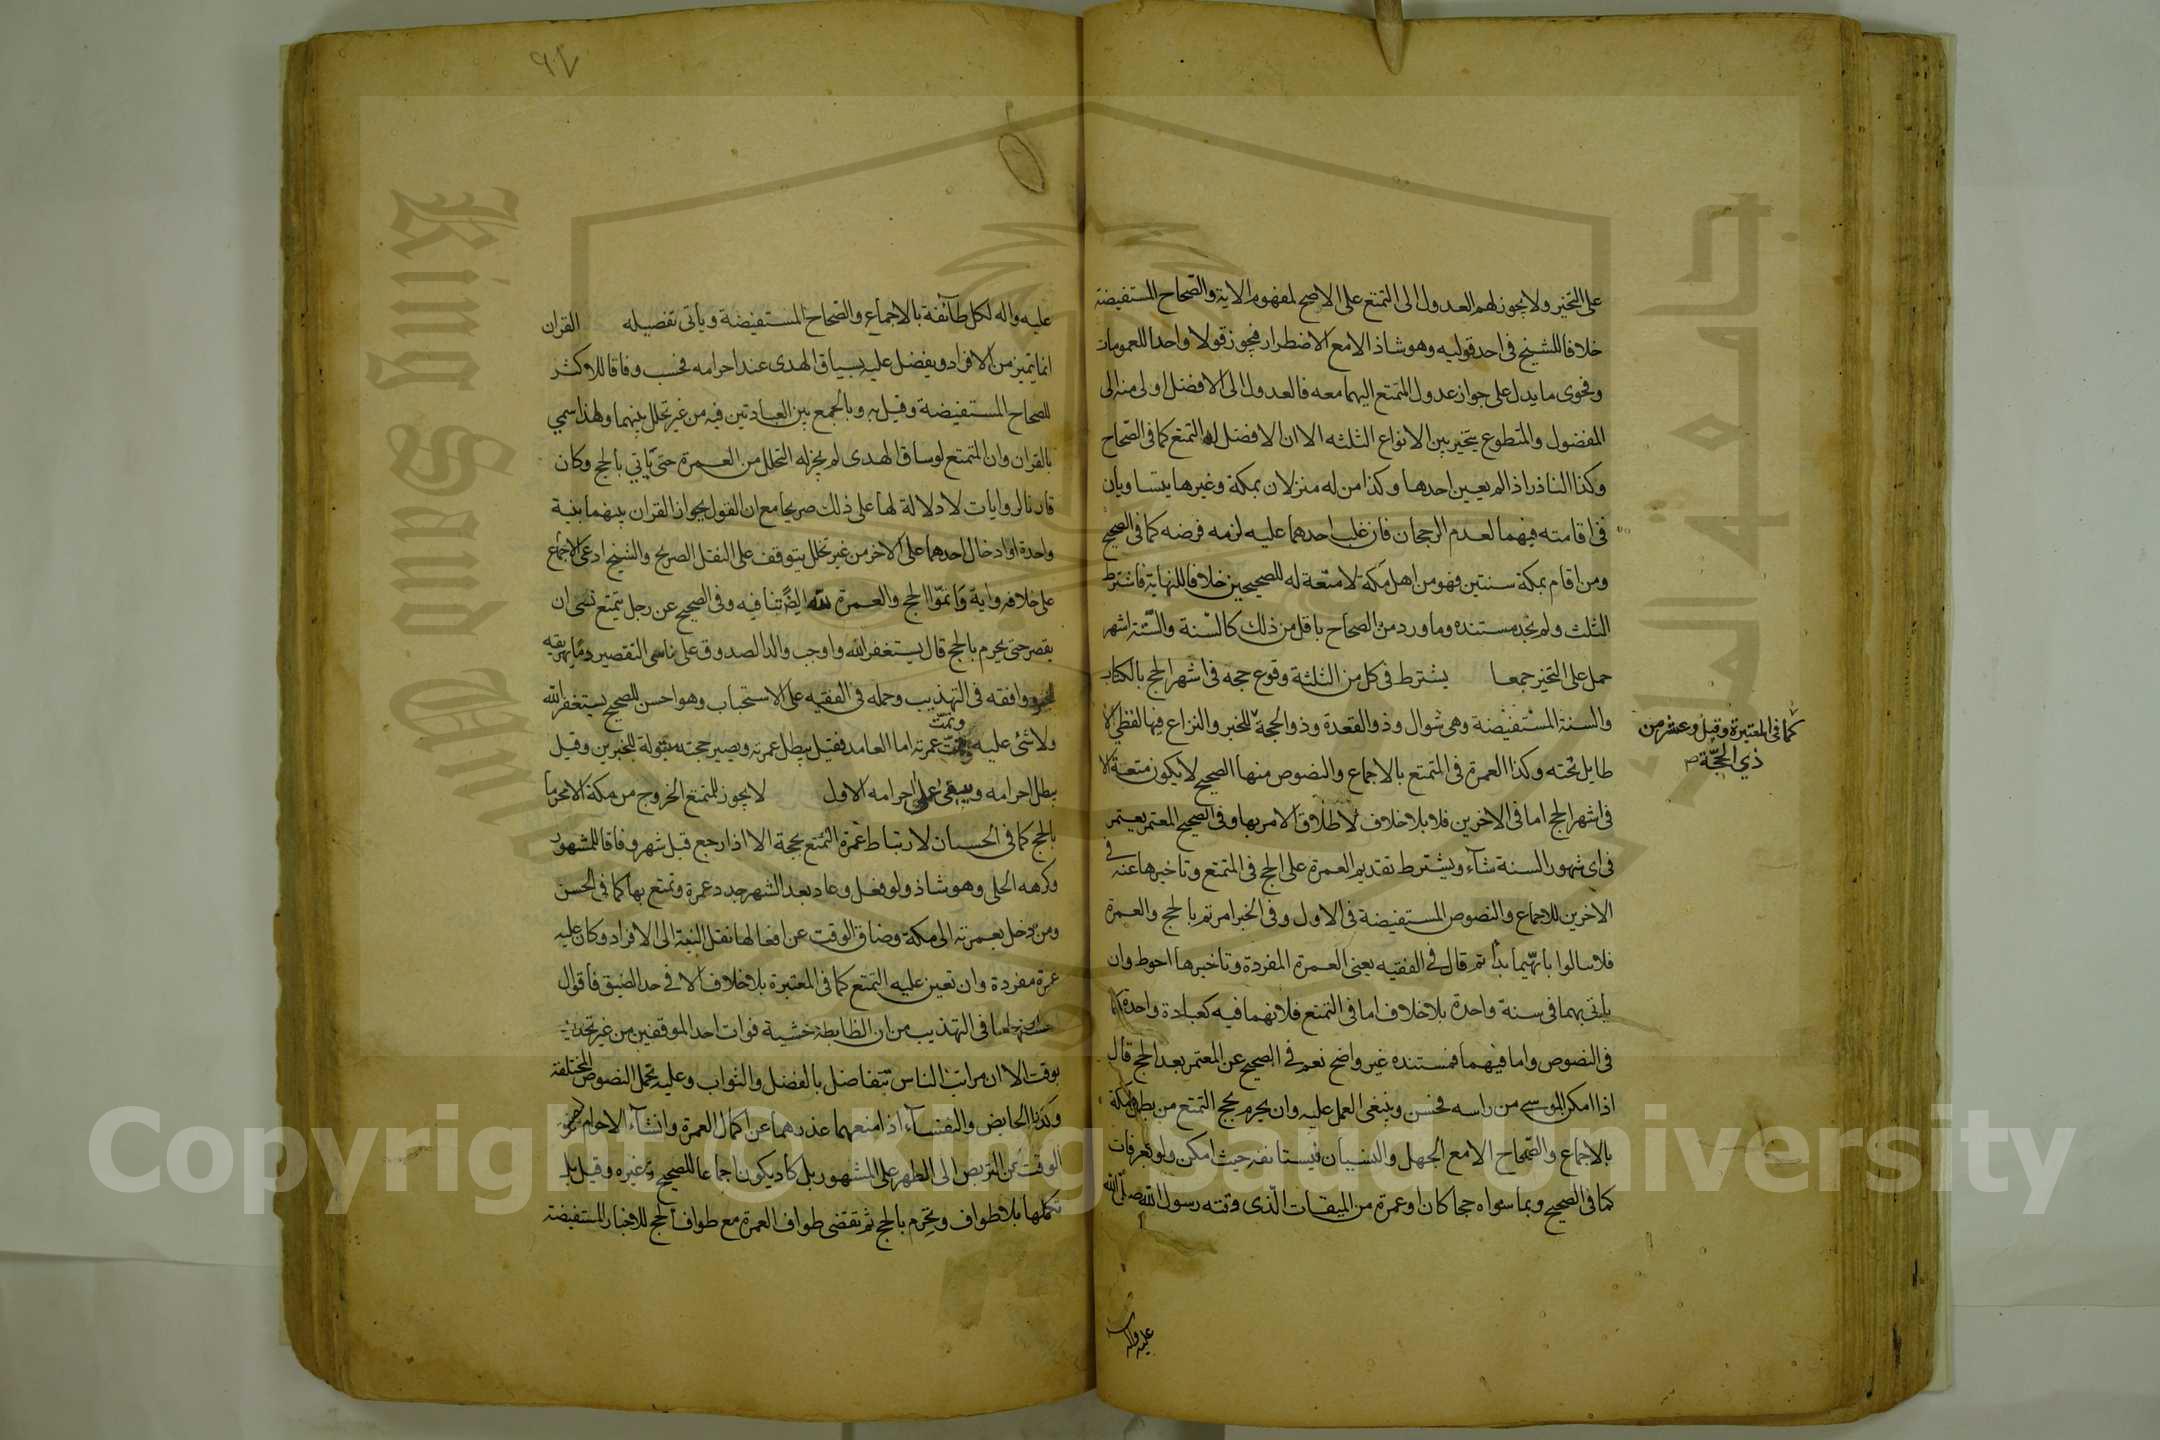 على التخير ولا يجوز لهم العدول الى التمتع على الاصح لمفهوم الاية والصحاح المستفيضة
خلافا للشيخ فى احد قوليه وهو شاذ الا مع الاضطرار فيجوز قولا واحدا للعمومات
وفحوى ما يدل على جواز عدول المتمتع اليهما معه فالعدول الى الافضل اولى منه الى
المفضول والمتطوع يتخير بين الانواع الثلثه الا ان الافضل له التمتع كما فى الصحاح
وكذا الناذر اذا لم يعين احدها وكذا من له منزلان بمكة وغيرها يتساويان
فى اقامته فيهما لعدم الرجحان فان غلب احدهما عليه لزمه فرضه كما فى الصحيح
ومن اقام بمكة سنتين فهو من اهل مكة لا متعة له للصحيحين خلافا للنهاية فاشترط
الثلث ولم نجد مستنده وما ورد من الصحاح باقل من ذلك كالسنة والستة اشهر
حمل على التخير جمعا يشترط فى كل من الثلثة وقوع حجه فى اشهر الحج بالكتاب
والسنة المستفيضة وهى شوال وذو القعدة وذو الحجة للخبر والنزاع فيها لفظى لا
كما فى المعتبرة وقيل وعشر من
ذي الحجّة صح
طايل تحته وكذا العمرة فى المتمتع بالاجماع والنصوص منها الصحيح لا يكون متعة الا
فى اشهر الحج اما فى الاخرين فلا بلا خلاف لاطلاق الامر بها وفى الصحيح المعتمر يعتمر
فى اى شهور السنة شاء ويشترط تقديم العمرة على الحج فى المتمتع وتاخيرها عنه فى
الاخرين للاجماع والنصوص المستفيضة فى الاول وفى الخبر امرتم بالحج والعمرة
فلا تبالوا بايّهما بدأتم قال فى الفقيه يعنى العمرة المفردة وتاخيرها احوط وان
ياتى بهما فى سنة واحدة بلا خلاف اما فى التمتع فلانهما فيه كعبادة واحدة كما
فى النصوص واما فيهما فمستنده غير واضح نعم فى الصحيح عن المعتمر بعد الحج قال
اذا امكن الموسى من راسه فحسن وينبغى العمل عليه وان يحرم بحج التمتع من بطن مكة
بالاجماع والصحاح الا مع الجهل والنسيان فيستانفه حيث امكن ولو بعرفات
كما فى الصحيح وبما سواه حجا كان او عمرة من الميقات الذى وقته رسول الله صلى الله
عليه واله
٩٧
عليه واله لكل طائفة بالاجماع والصحاح المستفيضة وياتى تفصيله القران
انما يتميز من الافراد ويفضل عليه بسياق الهدى عند احرامه فحسب وفاقا للاكثر
للصحاح المستفيضة وقيل به وبالجمع بين العبادتين فيه من غير تحلل بينهما ولهذا سمي
بالقران وان المتمتع لو ساق الهدى لم يجز له التحلل من العمرة حتى ياتي بالحج وكان
قارنا لروايات لا دلالة لها على ذلك صريحا مع ان القول بجواز القران بينهما بنية
واحدة او ادخال احدهما على الاخر من غير تحلل يتوقف على النقل الصريح والشيخ ادعى الاجماع
على خلافه رواية واتموا الحج والعمرة لله ايضا تنافيه وفى الصحيح عن رجل يتمتع نسى ان
يقصر حتى يحرم بالحج قال يستغفر الله واوجب والد الصدوق على ناسى التقصير دما يهريقه
للخبر ووافقه فى التهذيب وحمله فى الفقيه على الاستحباب وهو احسن للصحيح يستغفر الله
ولا شئ عليه وتمت عمرته اما العامد فقيل يبطل عمرته ويصير حجته مبتولة للخبرين وقيل
يبطل احرامه ويبقى على احرامه الاول لا يجوز للمتمتع الخروج من مكة الا محرما
بالحج كما فى الحسان لارتباط عمرة التمتع بحجة الا اذا رجع قبل شهر وفاقا للمشهور
وكرهه الحلى وهو شاذ ولو فعل وعاد بعد الشهر جدد عمرة وتمتع بها كما فى الحسن
ومن دخل بعمرته الى مكة وضاق الوقت عن افعالها نقل النية الى الافراد وكان عليه
عمرة مفردة وان تعين عليه التمتع كما فى المعتبرة بلا خلاف الا فى حد الضيق فاقوال
ما فى التهذيب من ان الظابطة خشية فوات احد الموقفين من غير تحديد
بوقت الا ان مراتب الناس تتفاضل بالفضل والثواب وعليه تحمل النصوص المختلفة
وكذا الحايض والنفساء اذا منعهما عذرهما عن اكمال العمرة وانشاء الاحرام
الوقت عن التربص الى الطهر على المشهور بل كاد يكون اجماعا للصحيح وغيره وقيل بل
تكملها بلا طواف وتحرم بالحج ثم تقضى طواف العمرة مع طواف الحج للاخبار المستفيضة